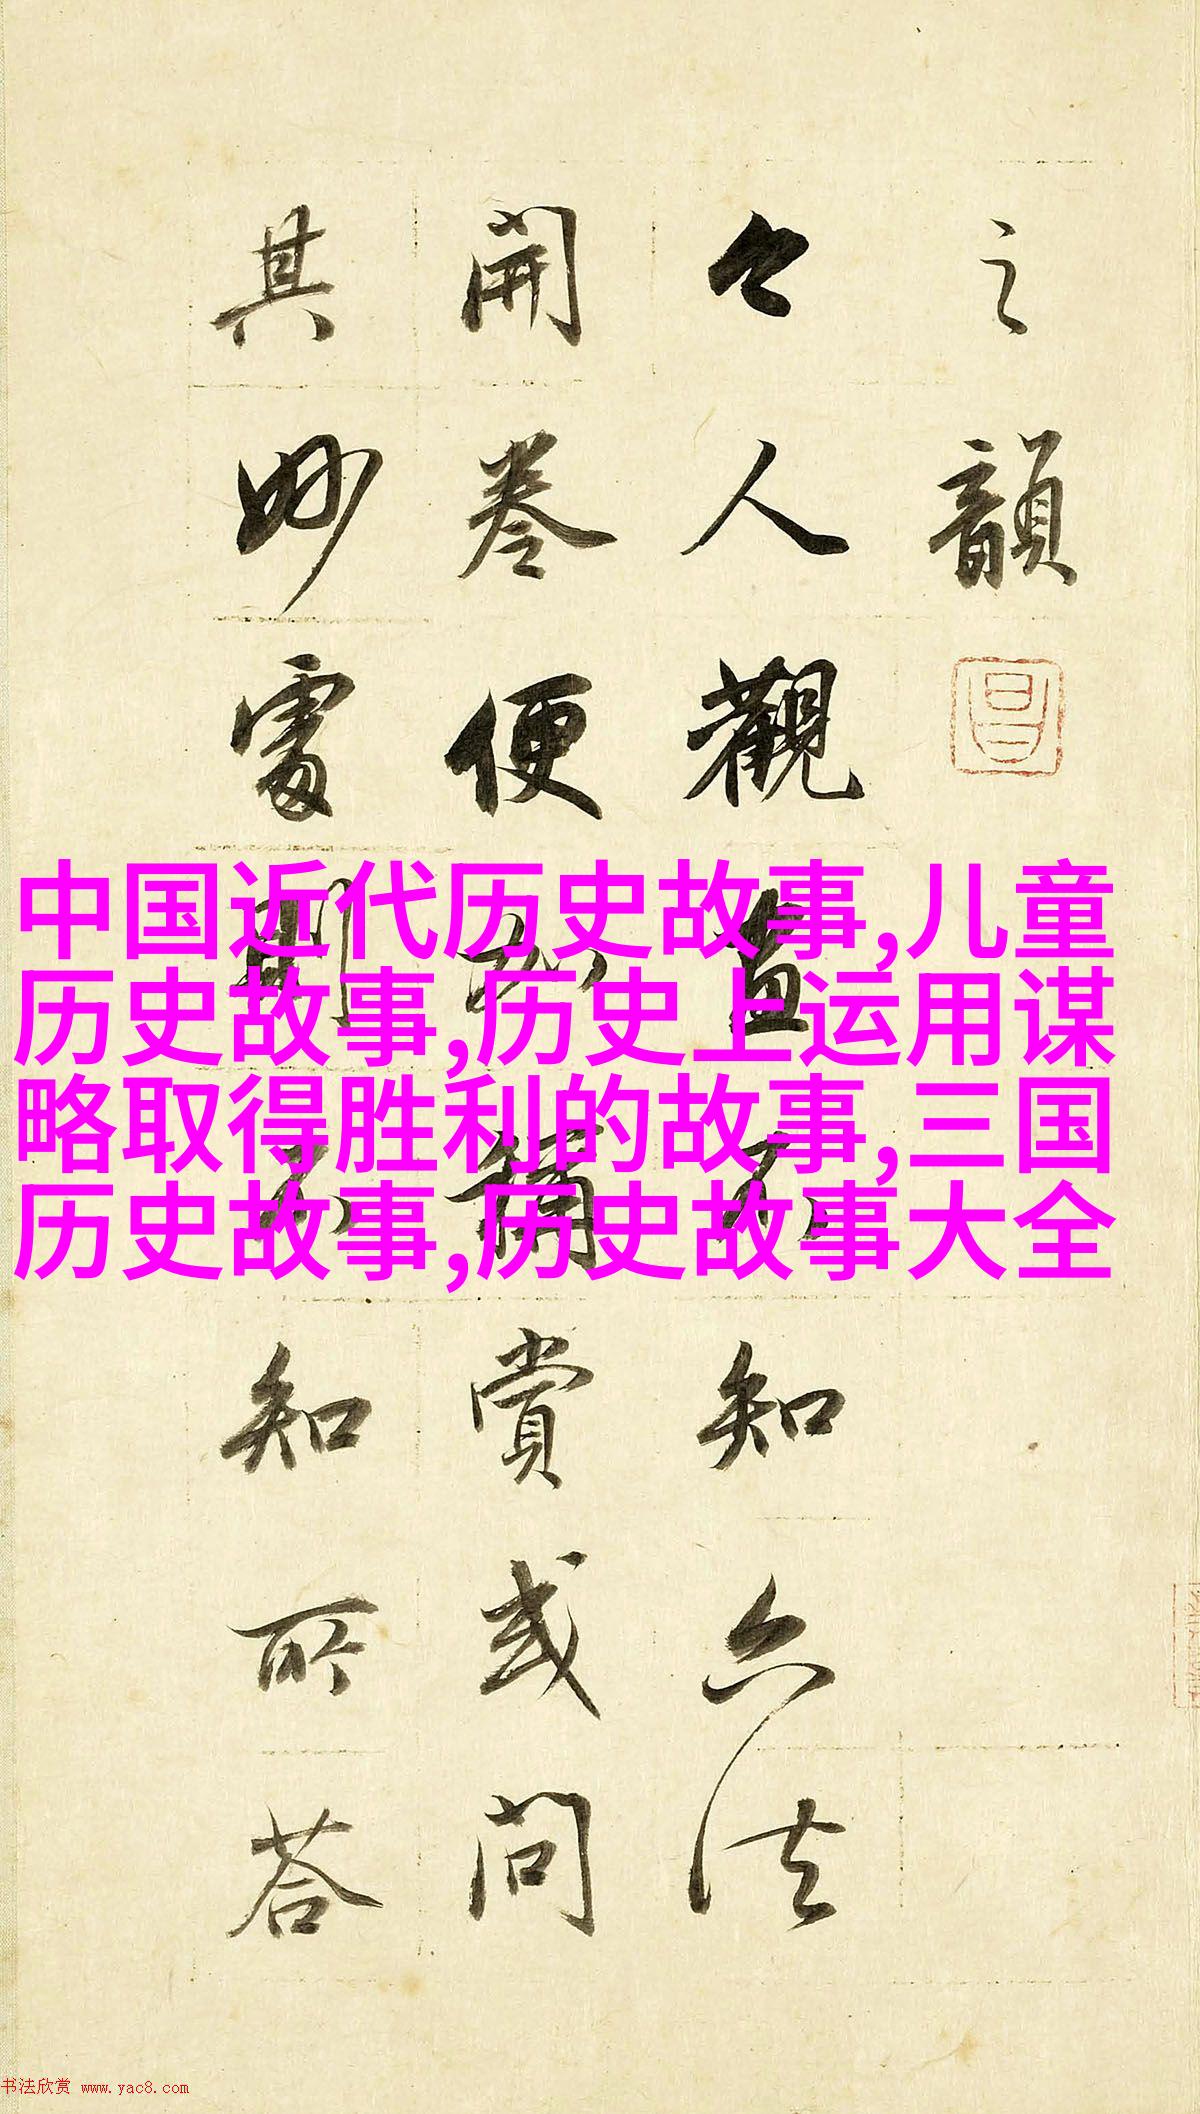 之韻
今人觀畫不知六法
開卷便加稱賞或問
其妙處則不知所答
中国近代历史故事,儿童
历史故事,历史上运用谋
略取得胜利的故事,三国
历史故事,历史故事大全
书法欣赏 www.yac8.com